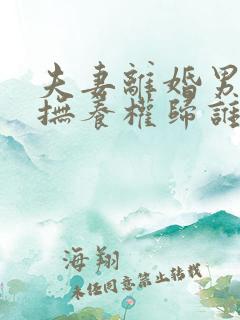 夫妻離婚男
撫養權歸誰
海翔
未經同意禁止轉載